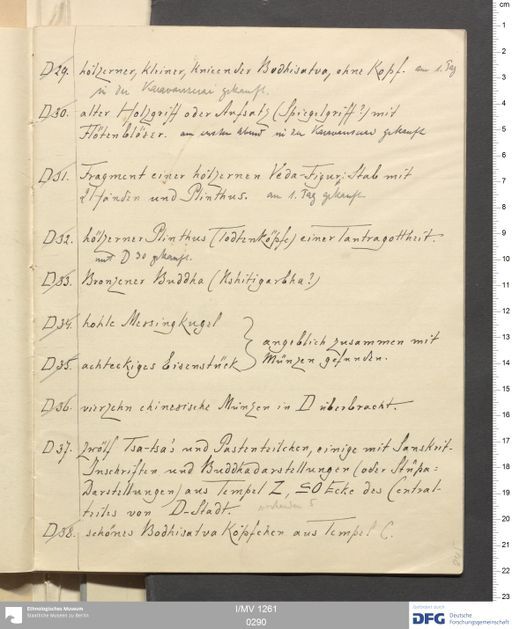 D 29. hölzerner, kleiner, knieender Bodhisatva, ohne Kopf. am 1. Tag
in der Karavanserai gekauft.
D 30. alter Holzgriff oder Aufsatz (Spiegelgriff?) mit
Flötenbläser. am ersten Abend in der Karavanserai gekauft
D 31. Fragment einer hölzernen Veda-Figur: Stab mit
2 Händen und Plinthus. am 1. Tag gekauft
D 32. hölzerner Plinthus (Todtenköpfe) einer Tantragottheit.
mit D 30 gekauft.
D 33. Bronzener Buddha (Kshitigarbha?)
D 34. hohle Messingkugel
angeblich zusammen mit
D 35. achteckiges Eisenstück
Münzen gefunden.
D 36. vierzehn chinesische Münzen in D überbracht.
D 37. zwölf Tsa-tsa's und Pastenteilchen, einige mit Sanskrit-
Inschriften und Buddhadarstellungen (oder Stûpa-
Darstellungen) aus Tempel Z, SO Ecke des Central-
teiles von D-Stadt. vorhanden 5
D 38. schönes Bodhisatva Köpfchen aus Tempel C.
Ethnologisches Museum
Staatliche Museen zu Berlin
I/MV 1261
0290
gefördert durch
DFG Deutsche
Forschungsgemeinschaft
cm
1
2
3
4
5
6
7
8
9
10
11
12
13
14
15
16
17
18
19
20
21
22
23